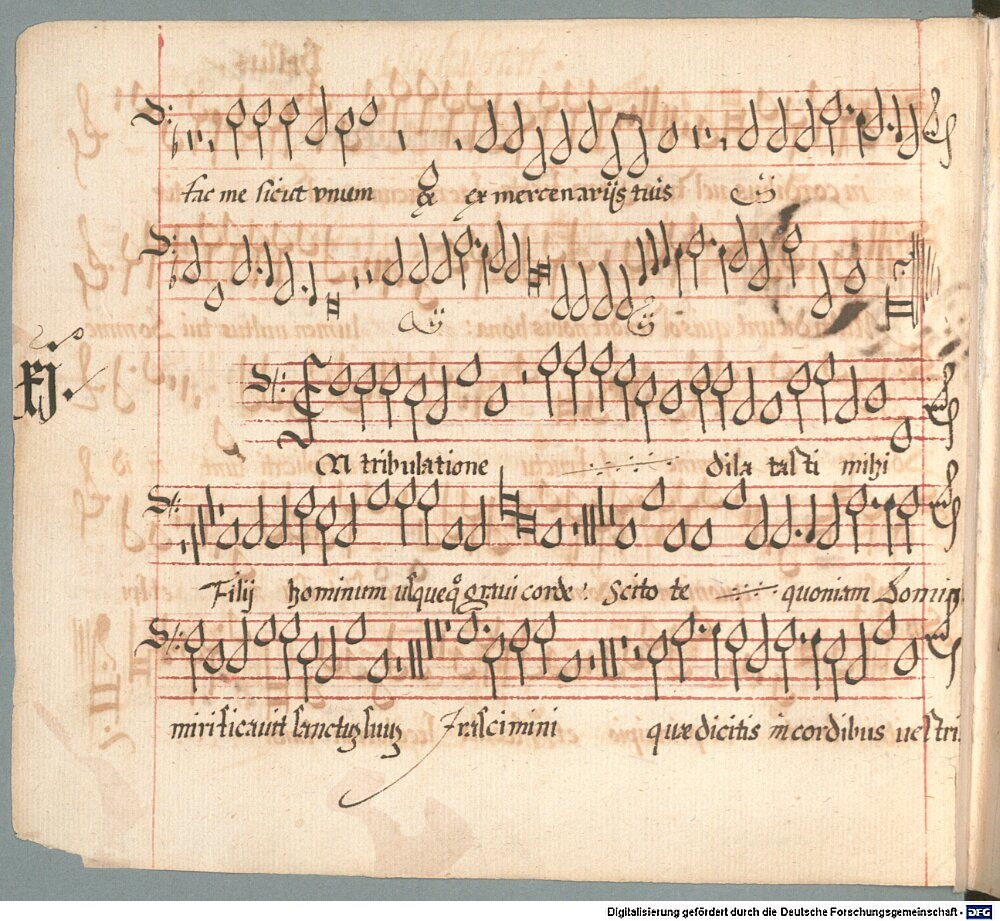 fac me sicut vnum & ex mercenarijs tuis
Xj.
In tribulatione dila tasti mihi
Filij hominum usqueq̊ graui corde: Scito te quoniam Domin
mirificauit sanctuʒ suuʒ Irascimini quæ dicitis in cordibus uestri
Digitalisierung gefördert durch die Deutsche Forschungsgemeinschaft - DFG